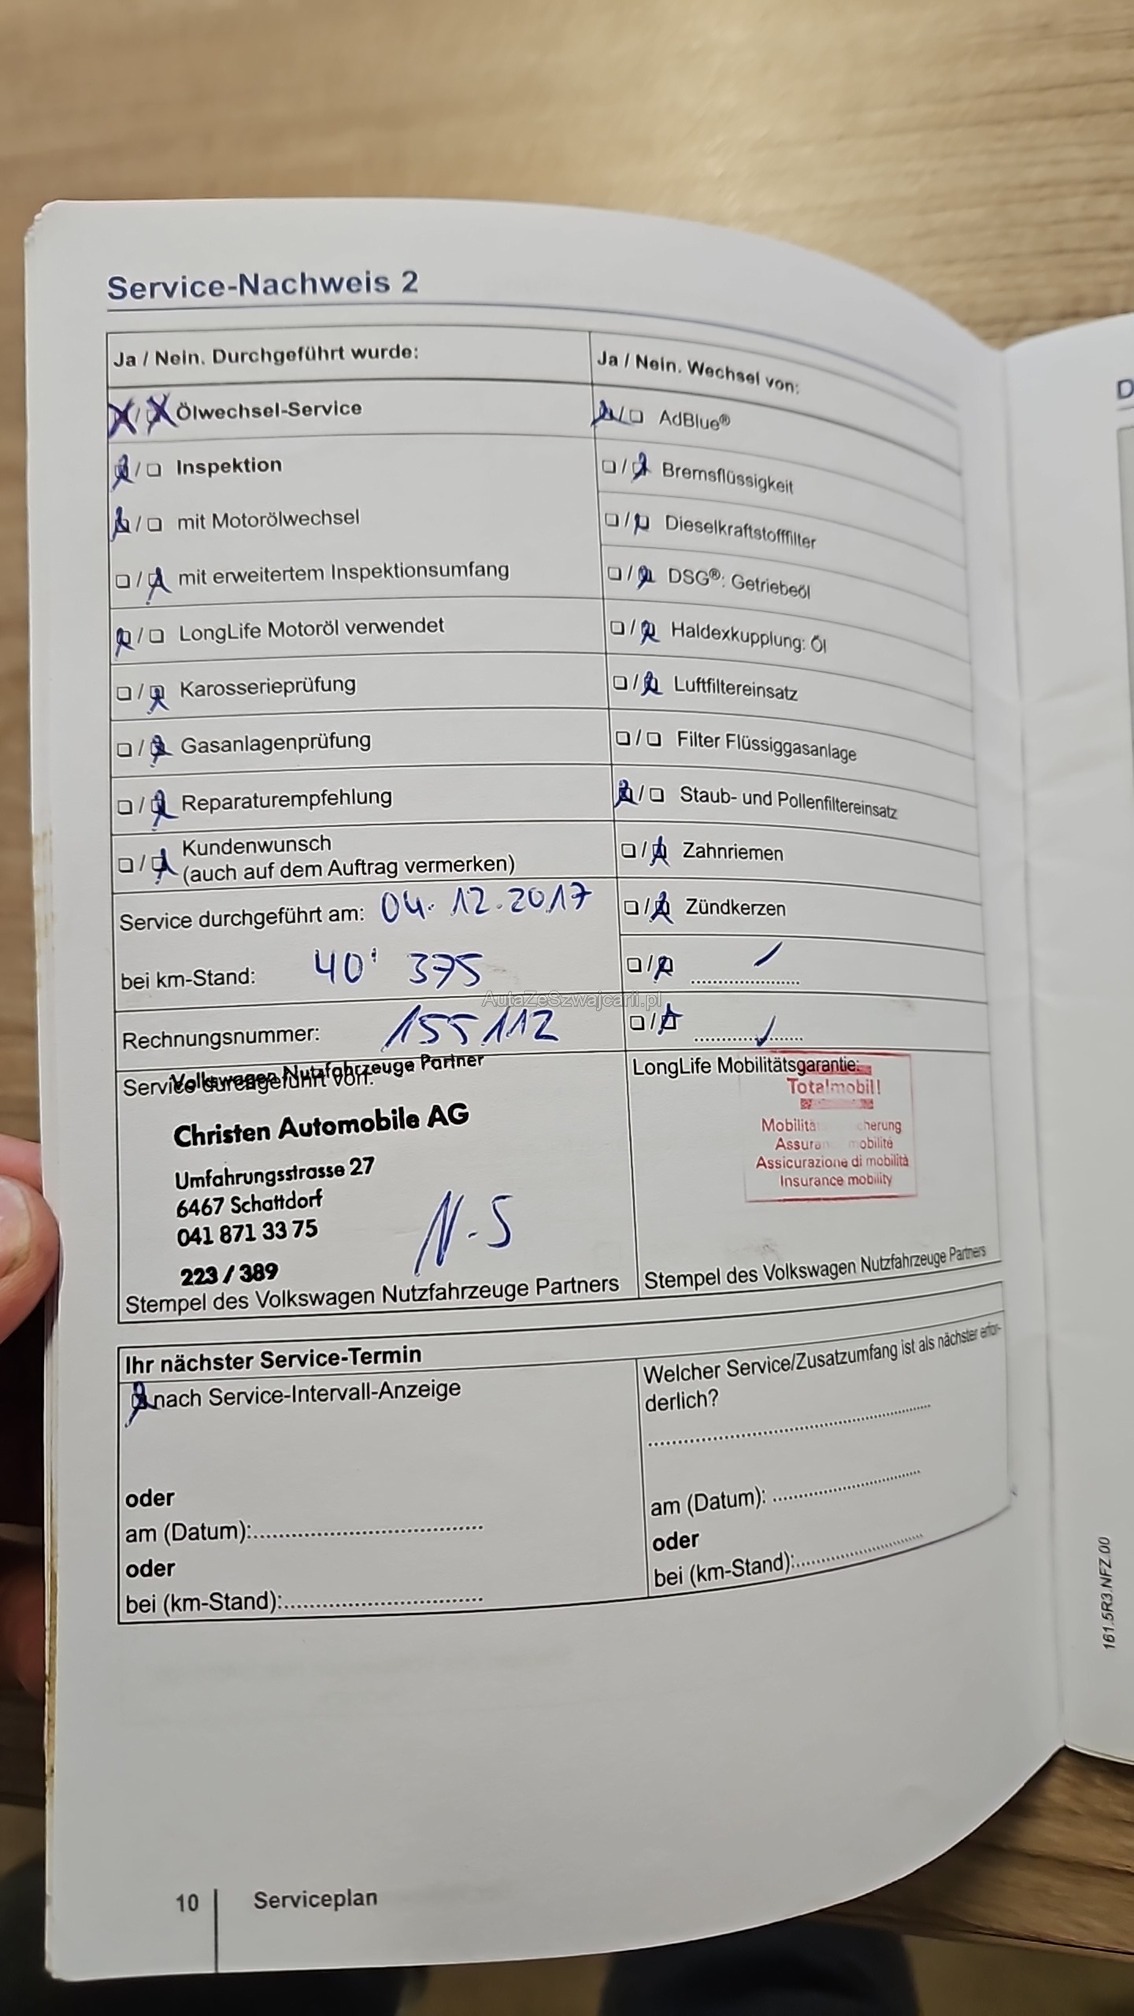 Service-Nachweis 2
Ja / Nein. Durchgeführt wurde:
Ölwechsel-Service
Inspektion
mit Motorölwechsel
mit erweitertem Inspektionsumfang
LongLife Motoröl verwendet
Karosserieprüfung
Gasanlagenprüfung
Reparaturempfehlung
Kundenwunsch
(auch auf dem Auftrag vermerken)
Service durchgeführt am: 04.12.2017
bei km-Stand: 40' 375
Rechnungsnummer: 155112
Ja / Nein. Wechsel von:
AdBlue®
Bremsflüssigkeit
Dieselkraftstofffilter
DSG®: Getriebeöl
Haldexkupplung: Öl
Luftfiltereinsatz
Filter Flüssiggasanlage
Staub- und Pollenfiltereinsatz
Zahnriemen
Zündkerzen
AutaZeSzwajcarii.pl
Service durchgeführt von:
Volkswagen Nutzfahrzeuge Partner
Christen Automobile AG
Umfahrungsstrasse 27
6467 Schattdorf
041 871 33 75
223 / 389
N.S
Stempel des Volkswagen Nutzfahrzeuge Partners
LongLife Mobilitätsgarantie:
Totalmobil!
Assicurazione di mobilità
Insurance mobility
Stempel des Volkswagen Nutzfahrzeuge Partners
Ihr nächster Service-Termin
nach Service-Intervall-Anzeige
oder
am (Datum):
oder
bei (km-Stand):
Welcher Service/Zusatzumfang ist als nächster erfor-
derlich?
am (Datum):
oder
bei (km-Stand):
10 Serviceplan
161.5R3.NFZ.00
D